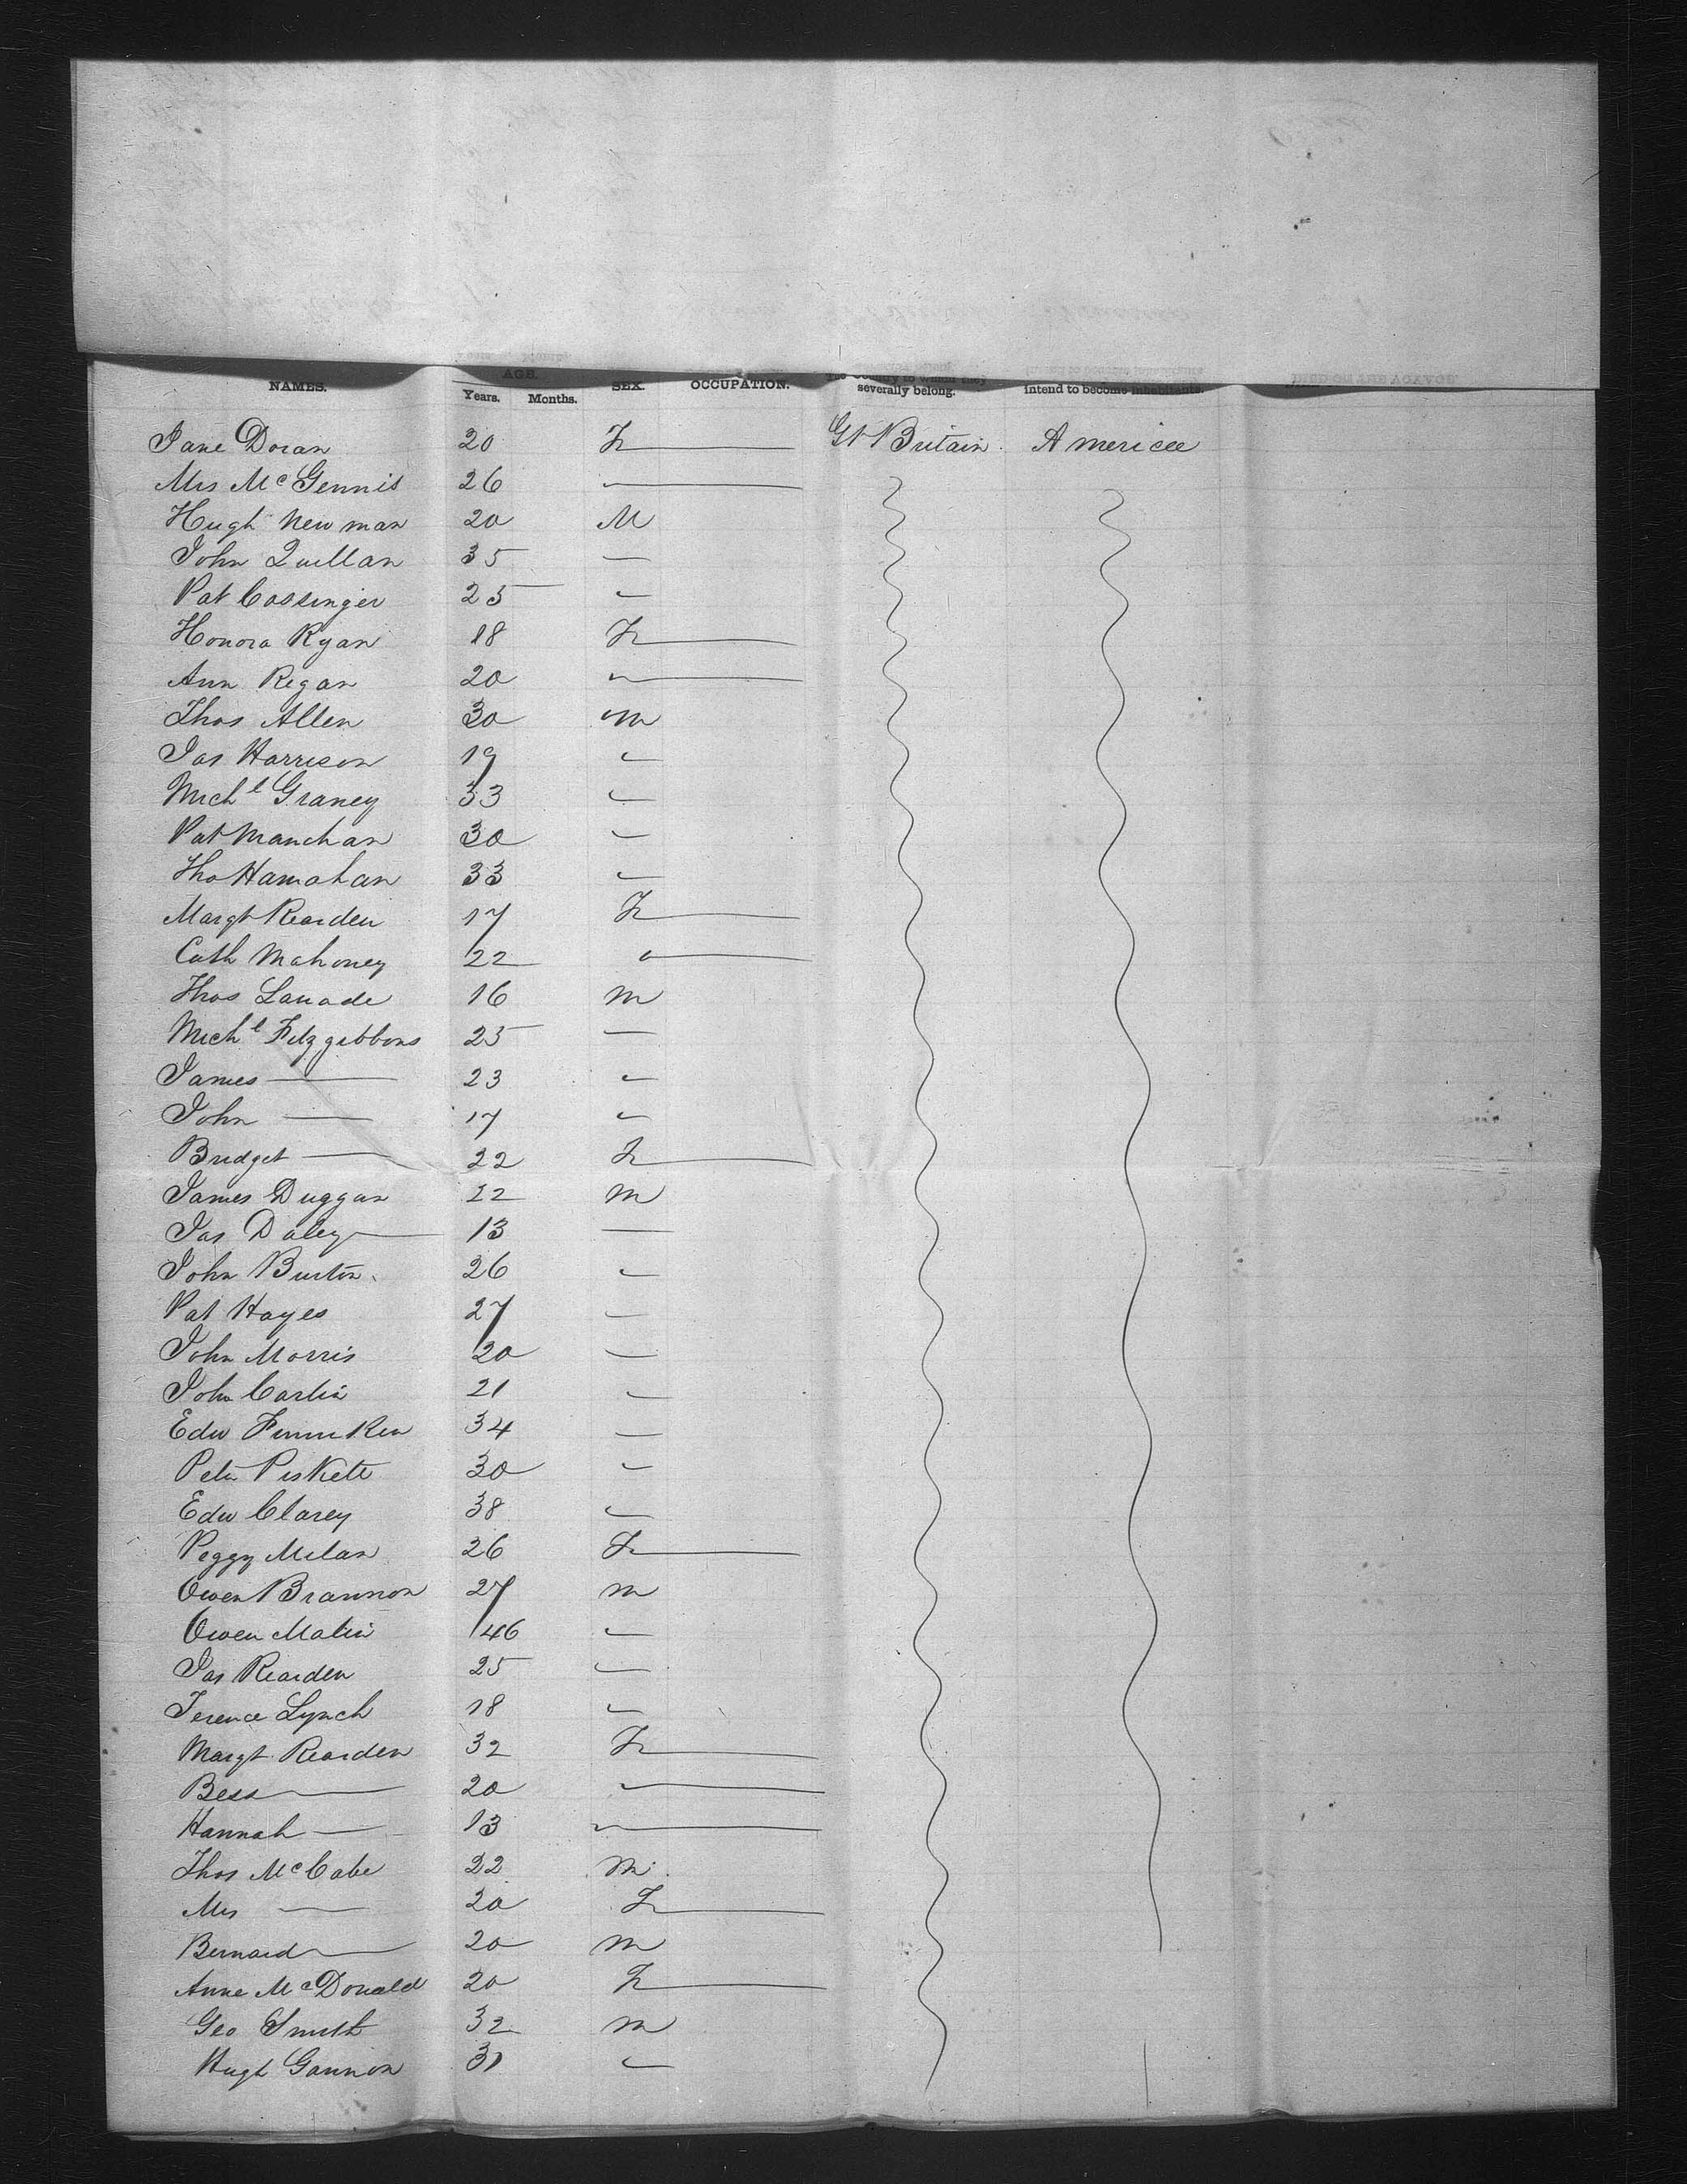 NAMES. AGE. Years. Months. SEX. OCCUPATION. The Country to which they severally belong. intend to become inhabitants.
Jane Doran 20 F Gt Britain America
Mrs McGennis 26
Hugh Newman 20 M
John Quillan 35
Pat Cossinger 25
Honora Ryan 18 F
Ann Regan 20
Thos Allen 30 m
Jas Harrison 19
Michl Graney 33
Pat Manchan 30
Tho Hamahan 33
Margt Rearden 17 F
Cath Mahoney 22
Thos 16 m
Michl Fitzgibbons 25
James — 23
John — 17
Bridget — 22 F
James Duggan 22 m
Jas Daley 13
John Burton 26
Pat Hayes 27
John Morris 20
John Carlin 21
Edw 34
Peter 30
Edw Clarey 38
Peggy Milan 26 F
Owen Brannon 27 m
Owen Malin 46
Jas Rearden 25
Terence Lynch 18
Margt Rearden 32 F
Bess — 20
Hannah — 13
Thos McCabe 22 m
Mrs — 20 F
Bernard — 20 m
Anne McDonald 20 F
Geo Smith 32 m
Hugh Gannon 31